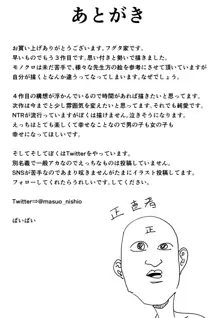 あとがき
お買い上げありがとうございます。フグタ家です。
早いものでもう3作目です。思い付きと勢いで描きました。
モノクロは未だ苦手で、様々な先生方の絵を参考にさせて頂いていますが
自分が描くとなんか違うってなってしまいます。なぜでしょう。
4作目の構想が浮かんでいるので時間があれば描きたいと思ってます。
次作は今までと少し雰囲気を変えたいと思ってます。それでも純愛です。
NTRが流行っていますがぼくは描けません。泣きそうになります。
えっちはとても楽しくて幸せなことなので男の子も女の子も
幸せになってほしいです。
そしてそしてぼくはTwitterをやっています。
別名義で一般アカなのでえっちなものは投稿していません。
SNSが苦手なのであまり呟きませんがたまにイラスト投稿してます。
フォローしてくれたらうれしいです。してください。
Twitter⇒@masuo_nishio
ばいばい
正